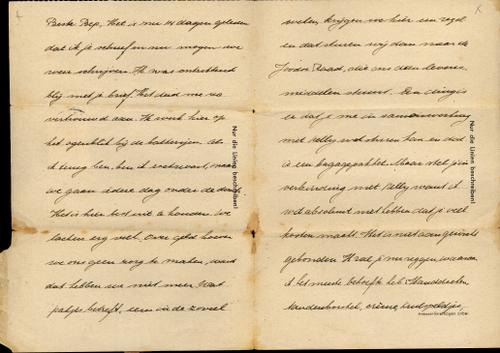 Beste Bep, Het is nu 14 dagen geleden
dat ik je schreef en nu mogen we
weer schrijven. Ik was ontzettend
blij met je brief. Het deed me zo
vertrouwd aan. Ik werk hier op
het ogenblik bij de batterijen. Als
ik terug ben, ben ik roetzwart, maar
we gaan iedere dag onder de douche.
Het is hier best uit te houden. We
lachen erg veel. Over geld hoeven
we ons geen zorg te maken, want
dat hebben we niet meer. Wat
pakjes betreft, eens in de zoveel
Nur die Linien beschreiben!
weken krijgen we hier een zegel
en dat sturen wij dan naar de
Joodse Raad, die ons dan levens
middelen stuurt. Een ding is
er dat je me in samenwerking
met Kelly wel sturen kan en dat
is een bagagepakket. Maar stel je in
verbinding met Kelly want ik
wil absoluut niet hebben dat je veel
kosten maakt. Het is niet aan gewicht
gebonden. Ik zal je nu zeggen, waaraan
ik het meeste behoefte heb: Handdoeken,
tandenborstel, crème,
Nur die Linien beschreiben!